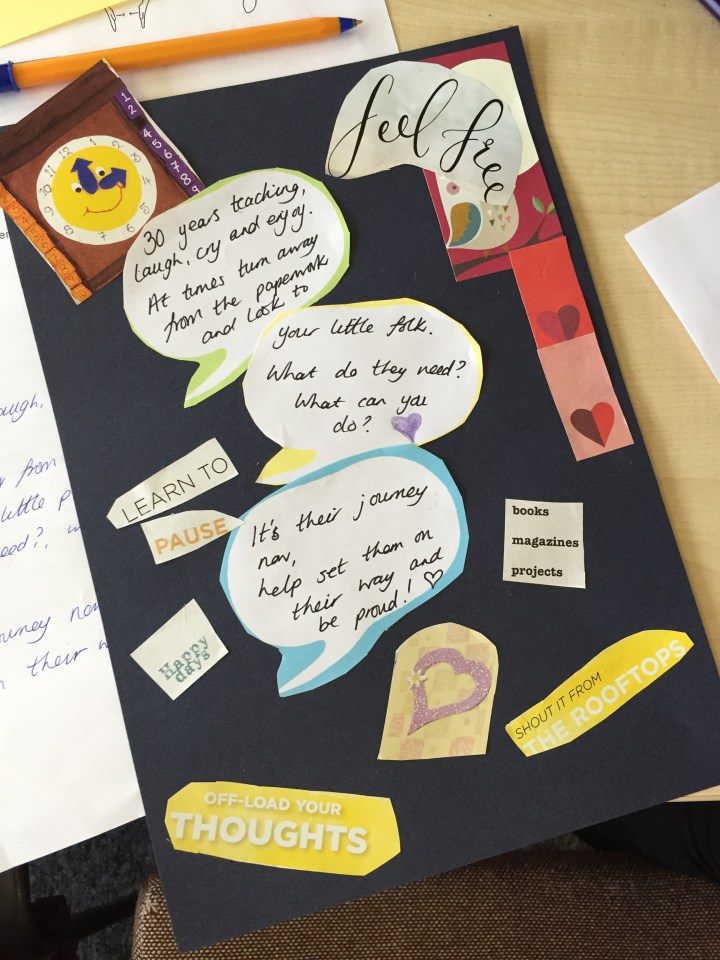 feel free
30 years teaching,
laugh, cry and enjoy.
At times turn away
from the paperwork
and look to
your little folk.
What do they need?
What can you
do?
It's their journey
now,
help set them on
their way and
be proud! ♡
LEARN TO
PAUSE
books
magazines
projects
Happy
days
SHOUT IT FROM
THE ROOFTOPS
OFF-LOAD YOUR
THOUGHTS
12
1
2
3
4
5
6
7
8
9
10
11
1
2
4
5
6
7
8
from
little
their